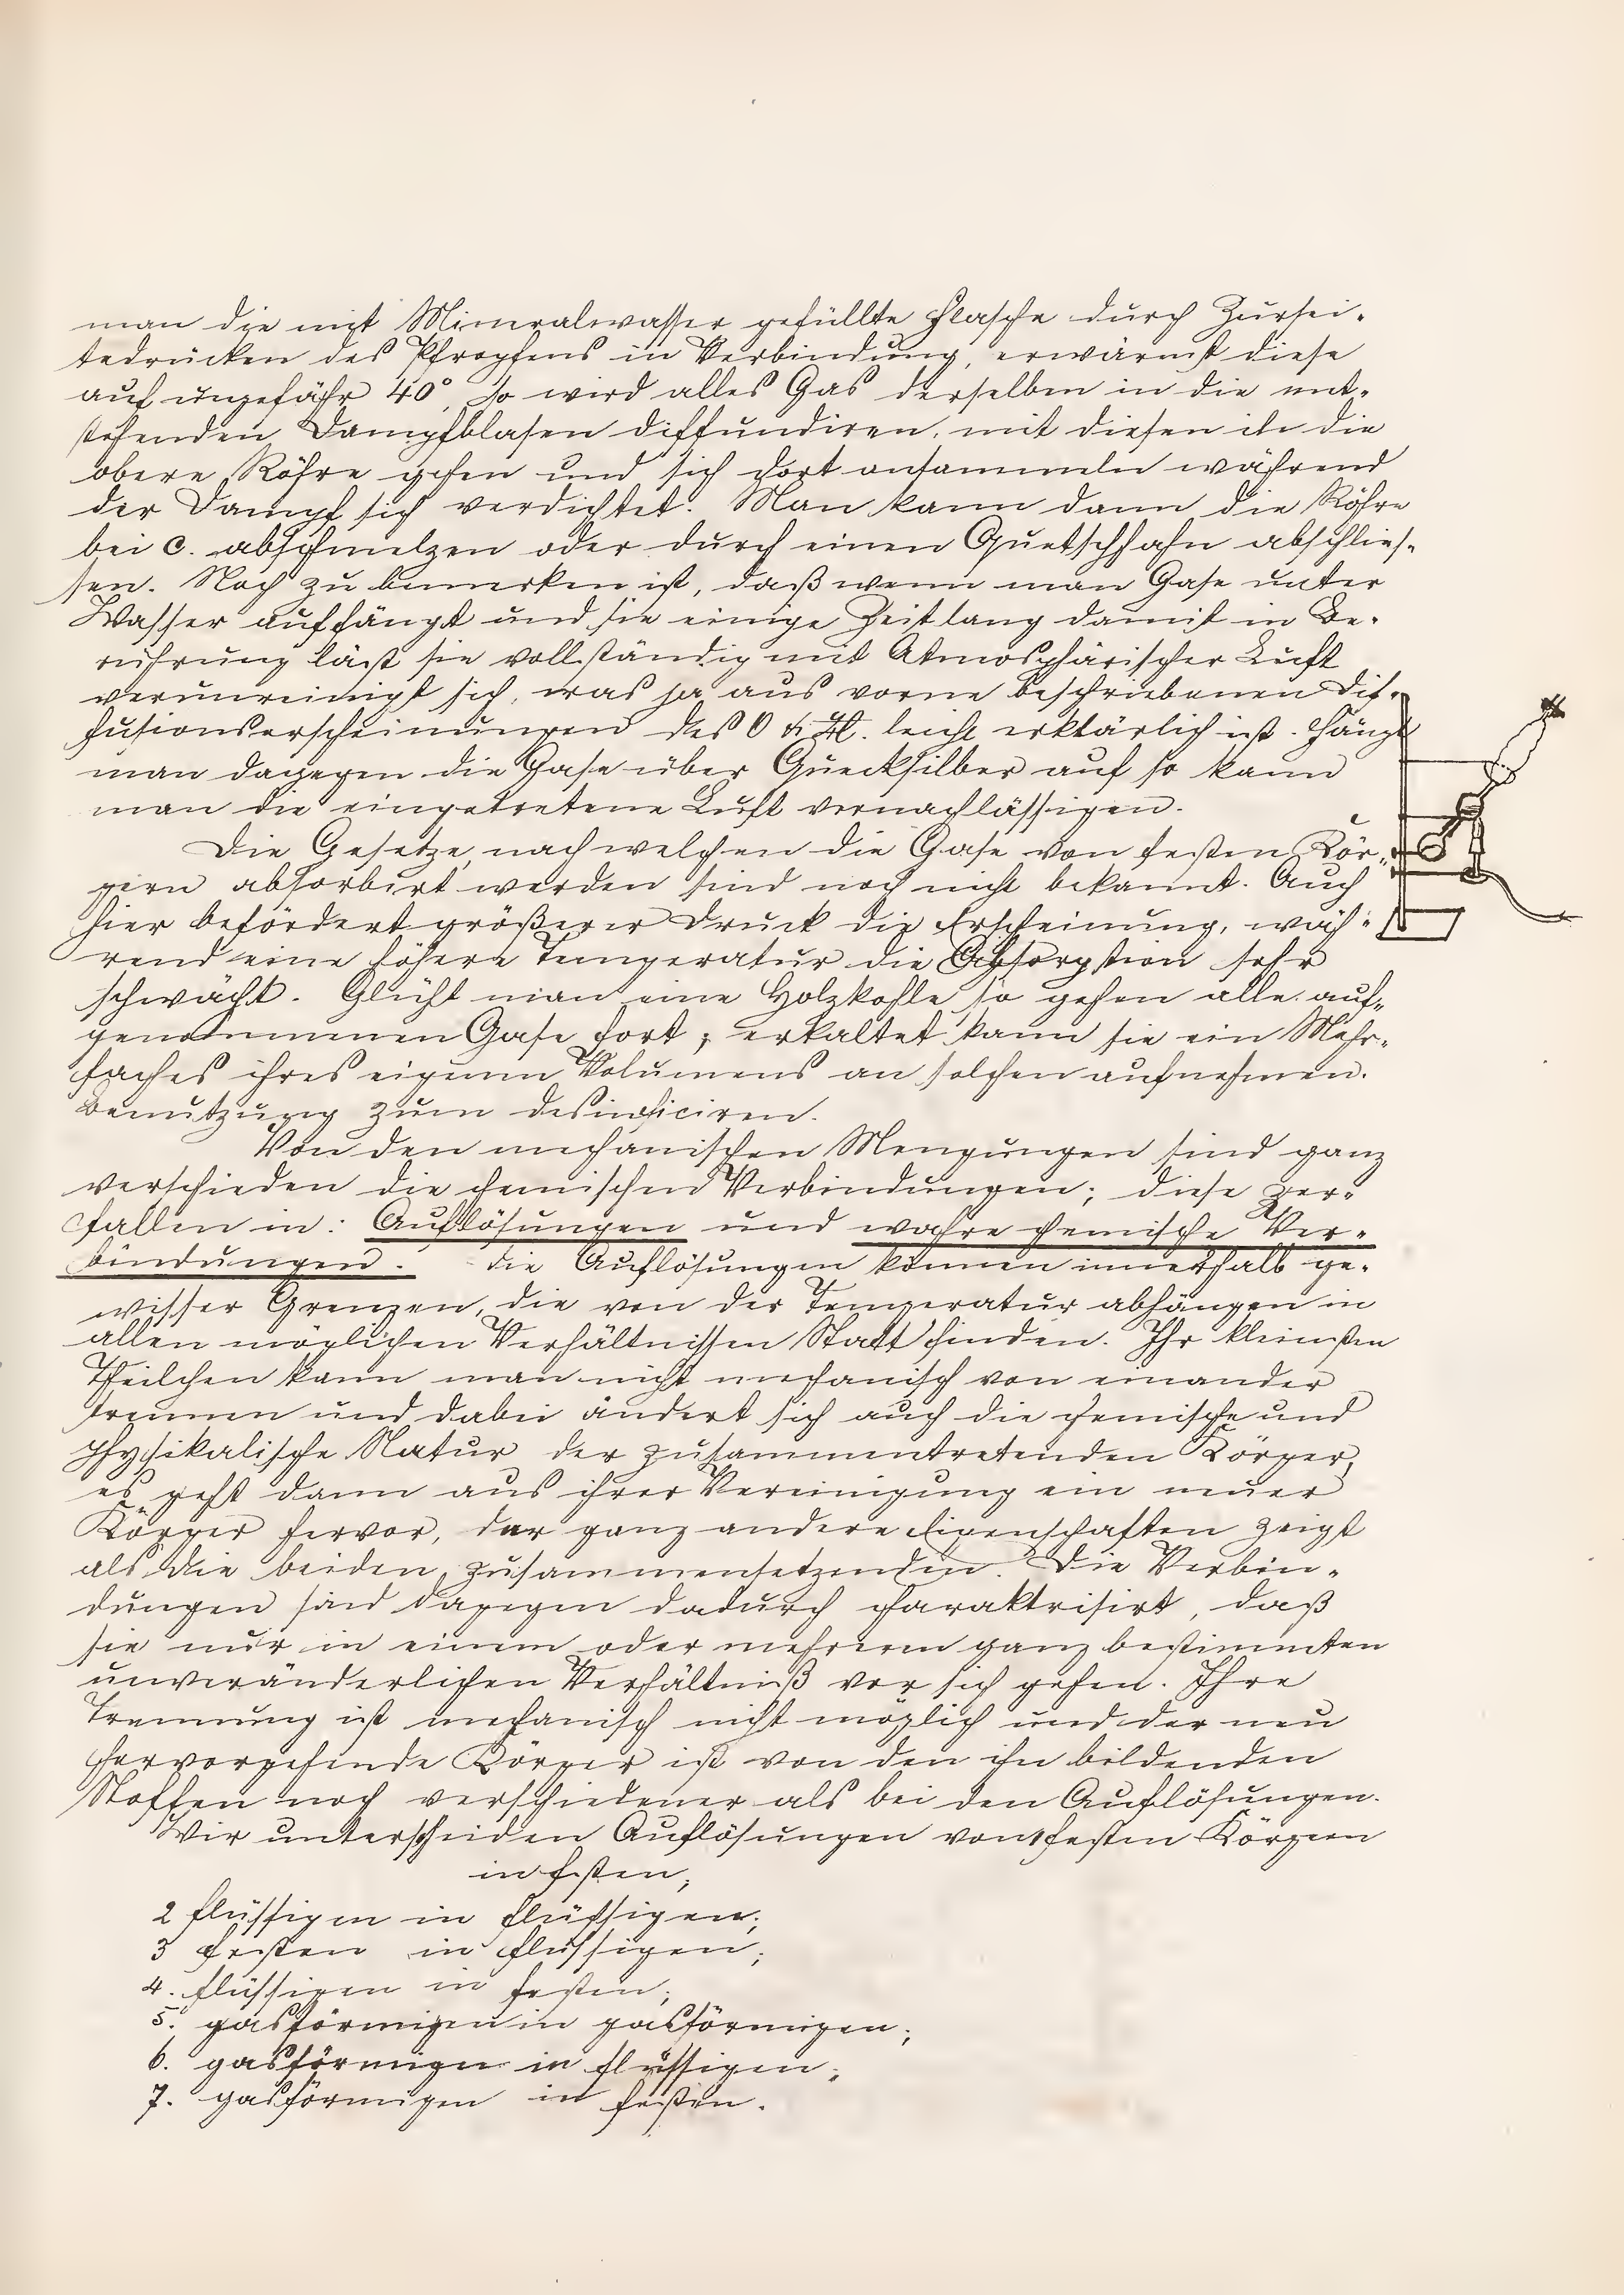 man die mit Mineralwasser gefüllte Flasche durch Zursei-
tedrücken des Pfropfens in Verbindung, erwärmt diese
auf ungefähr 40°, so wird alles Gas derselben in die ent-
stehenden Dampfblasen diffundiren, mit diesen in die
obere Röhre gehen und sich dort ansammeln während
der Dampf sich verdichtet. Man kann dann die Röhre
bei c. abschmelzen oder durch einen Quetschhahn abschlies-
sen. Noch zu bemerken ist, daß wenn man Gase unter
Wasser auffängt und sie einige Zeit lang damit in Be-
rührung läßt sie vollständig mit Atmosphärischer Luft
verunreinigt sich, was ja aus vorne beschriebenen Dif-
fusionserscheinungen des O & H. leicht erklärlich ist. Fängt
man dagegen die Gase über Quecksilber auf so kann
man die eingetretene Luft vernachlässigen.
Die Gesetze, nach welchen die Gase von festen Kör-
pern absorbirt werden sind noch nicht bekannt. Auch
hier befördert größerer Druck die Erscheinung, wäh-
rend eine höhere Temperatur die Absorption sehr
schwächt. Glüht man eine Holzkohle so gehen alle auf-
genommenen Gase fort; erkaltet kann sie ein Mehr-
faches ihres eigenen Volumens an solchen aufnehmen.
Benutzung zum desinficiren.
Von den mechanischen Mengungen sind ganz
verschieden die chemischen Verbindungen; diese zer-
fallen in: Auflösungen und wahre chemische Ver-
bindungen. die Auflösungen können innerhalb ge-
wisser Grenzen, die von der Temperatur abhängen in
allen möglichen Verhältnissen Statt finden. Ihr kleinsten
Theilchen kann man nicht mechanisch von einander
trennen und dabei ändert sich auch die chemische und
physikalische Natur der zusammentretenden Körper,
es geht dann aus ihrer Vereinigung ein neuer
Körper hervor, der ganz andere Eigenschaften zeigt
als die beiden zusammensetzenden. Die Verbin-
dungen sind dagegen dadurch charaktrisirt, daß
sie nur in einem oder mehreren ganz bestimmten
unveränderlichen Verhältniß vor sich gehen. Ihre
Trennung ist mechanisch nicht möglich und der neu
hervorgehende Körper ist von den ihn bildenden
Stoffen noch verschiedener als bei den Auflösungen.
Wir unterscheiden Auflösungen von 1 festen Körpern
in festen;
2 flüssigen in flüssigen;
3 festen in flüssigen;
4. flüssigen in festen;
5. gasförmigen in gasförmigen;
6. gasförmigen in flüssigen;
7. gasförmigen in festen.